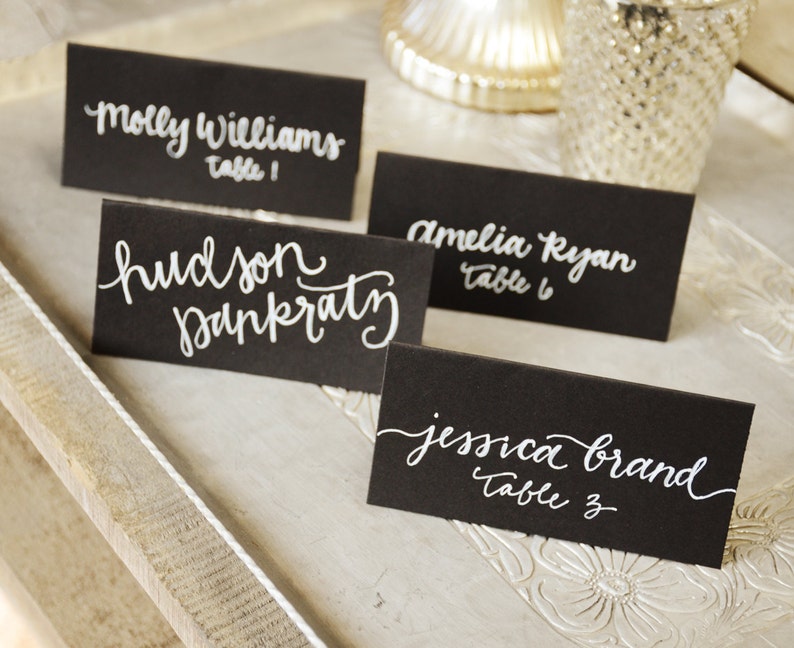 molly williams
table 1
amelia ryan
table 6
hudson
pankratz
jessica brand
table 3